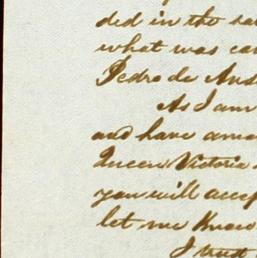 ded in the
what was
Pedro de
As I am
and have
Queen Victoria
you will
let me Know
I trust